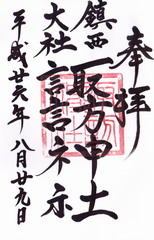 奉拝
鎮西
大社
諏訪神社
平成廿六年 八月廿九日